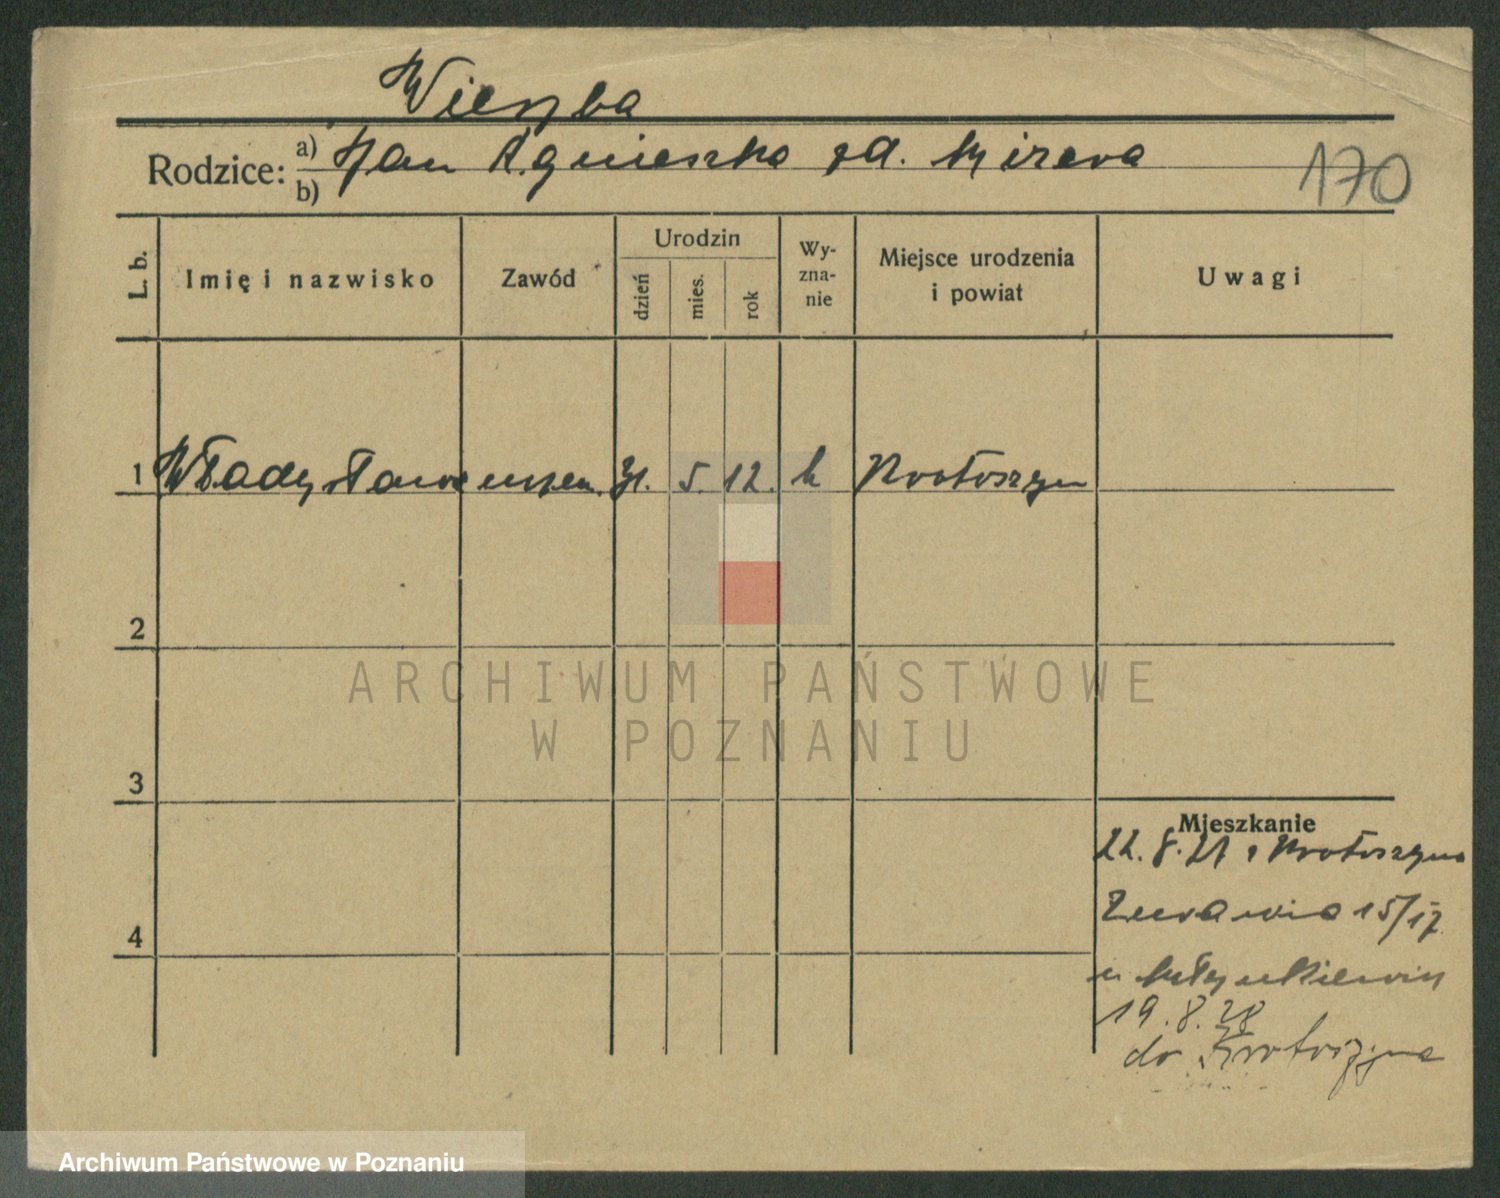 Wierzba
Rodzice: a) Jan Agnieszka zd.
b)
170
L. b.
Imię i nazwisko
Zawód
Urodzin
dzień
mies.
rok
Wy-
zna-
nie
Miejsce urodzenia
i powiat
Uwagi
1 Władysława 31. 5. 12. k Krotoszyn
2
ARCHIWUM PAŃSTWOWE
W POZNANIU
3
Mieszkanie
22. 8. 27 z Krotoszyna
4
Żurawia 15/17
u
19. 8. 28
do Krotoszyna
Archiwum Państwowe w Poznaniu